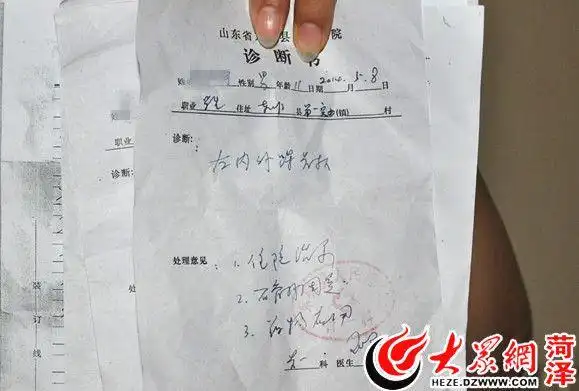 山东省 县 院
诊断书
姓 性别 男 年龄 11 日期 2014年5月8日
职业 学生 住址 第一实小(镇) 村
诊断:
左内外踝骨折
处理意见: 1. 住院治疗
2. 石膏外固定
3. 药物应用
科 医生
职业
诊断:
处
装订线
大众网 菏泽
HEZE.DZWWW.COM